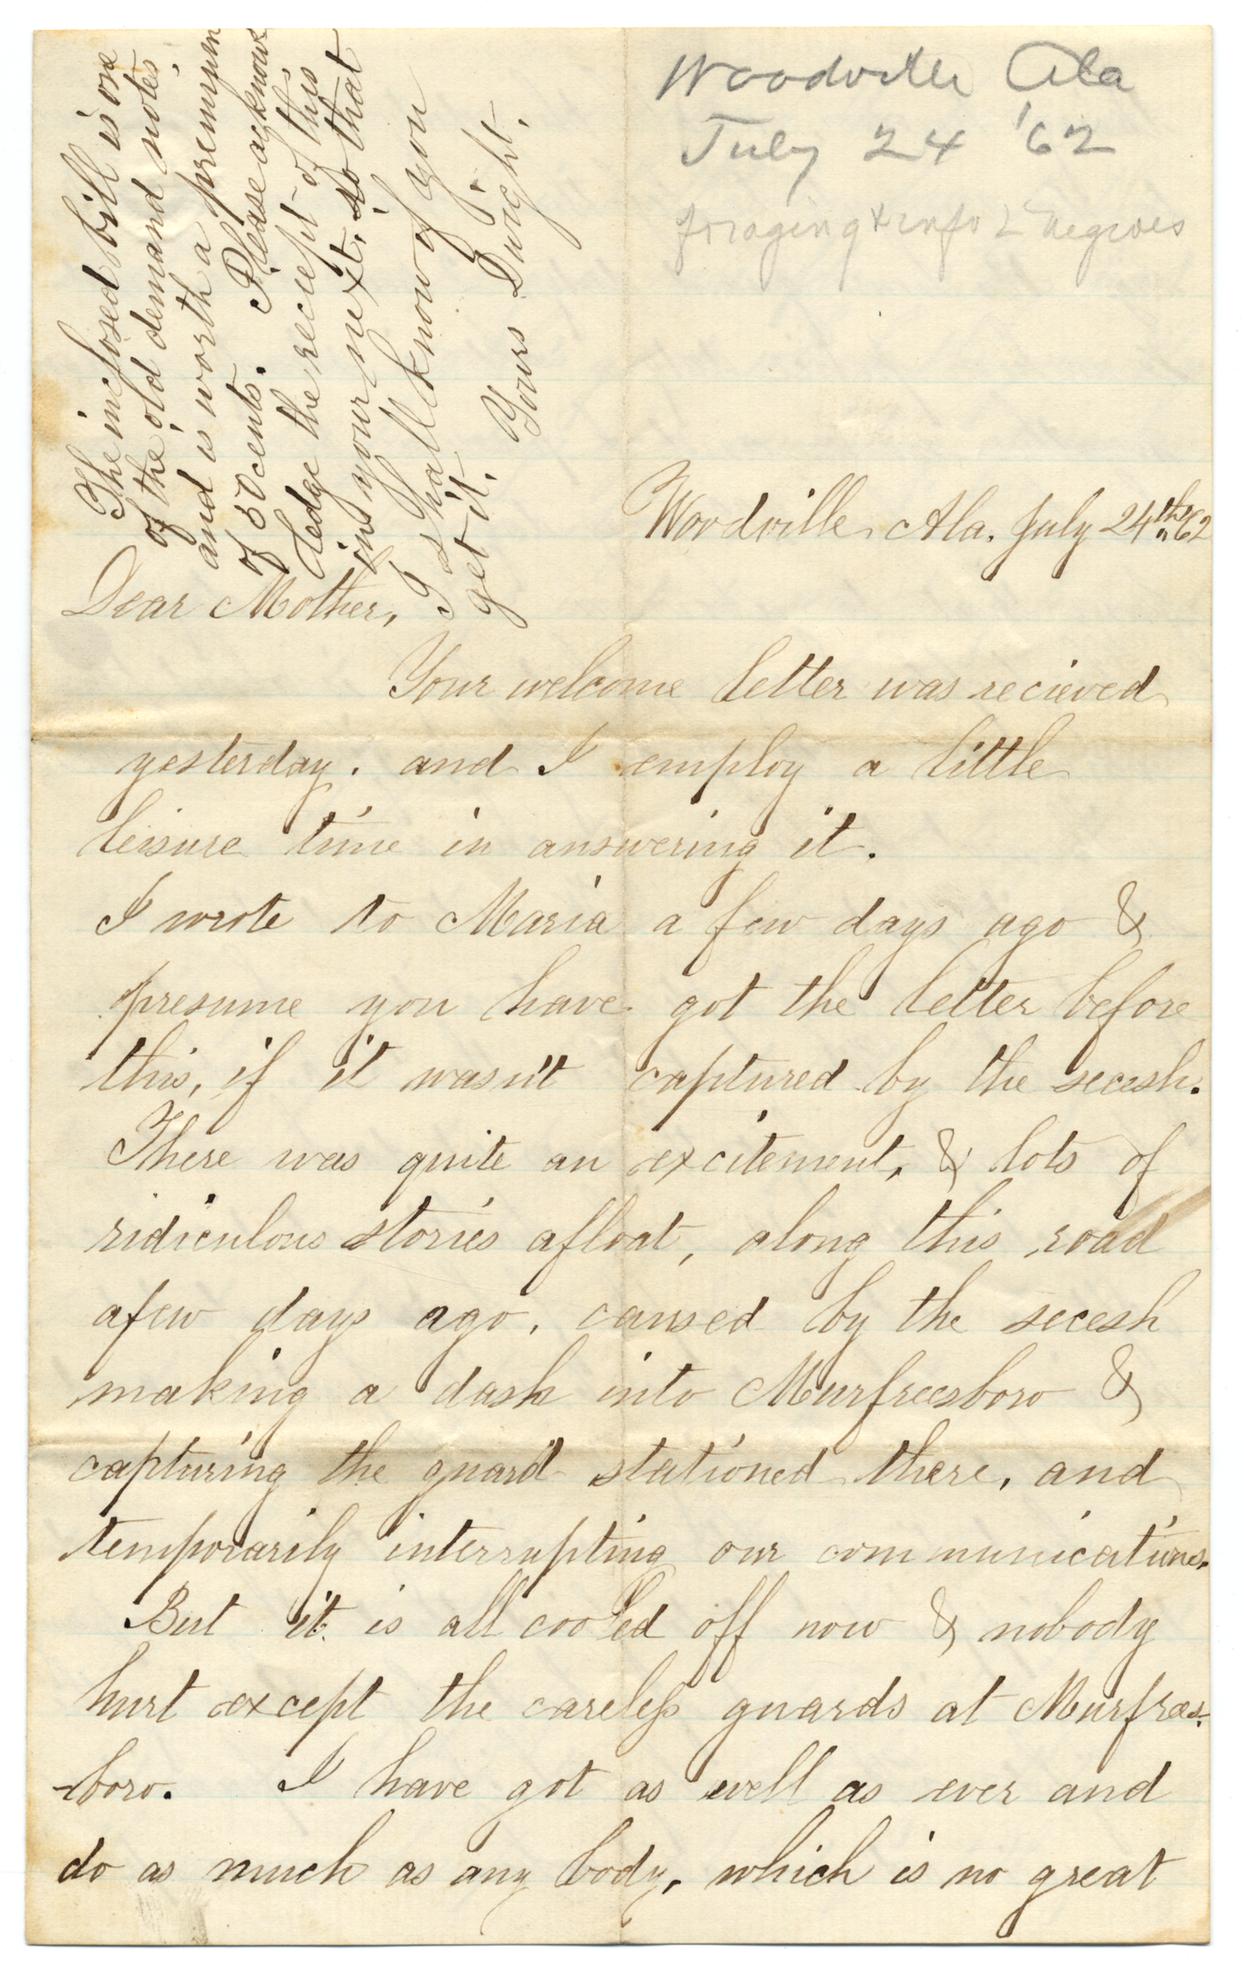 Woodville Ala
July 24 '62
foraging + info 2 negroes
The inclosed bill is one
of the old demand notes.
and is worth a premium
of 50 cents. Please acknow
ledge the reciept of this
in your next, so that
I shall know if you
get it. Yours Dwight.
Woodville, Ala. July 24th, 62
Dear Mother,
Your welcome letter was recieved
yesterday. and I employ a little
leisure time in answering it.
I wrote to Maria a few days ago &
presume you have got the letter before
this, if it wasn't captured by the secesh.
There was quite an excitement, & lots of
ridiculous stories afloat, along this road
afew days ago, caused by the secesh
making a dash into Murfreesboro &
capturing the guard stationed there, and
temporarily interrupting our communications.
But it is all cooled off now & nobody
hurt except the careless guards at Murfrees-
-boro. I have got as well as ever and
do as much as any body, which is no great